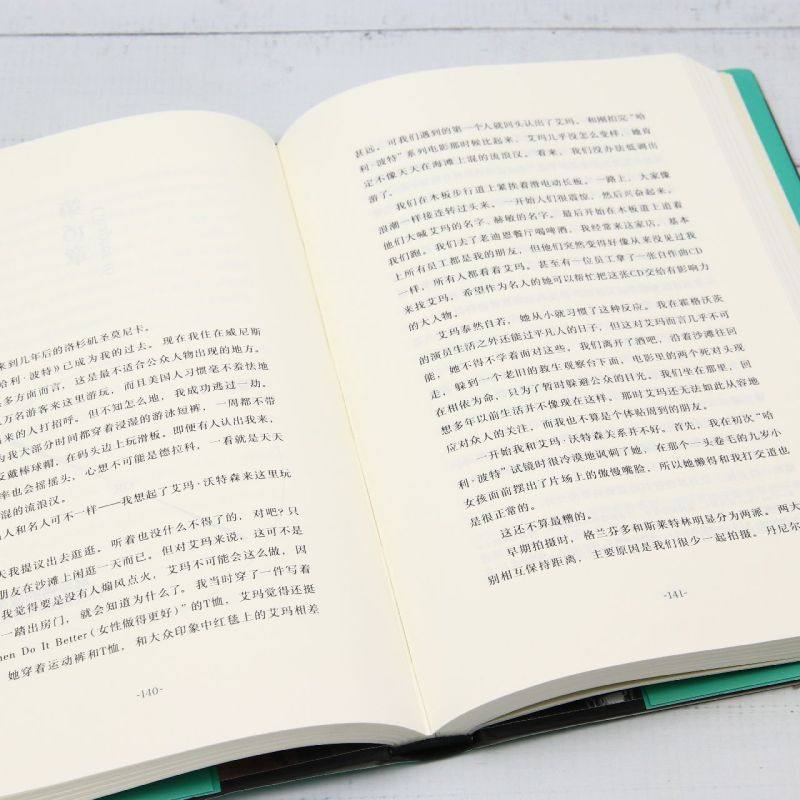 来到几年后的洛杉矶圣莫尼卡。
哈利·波特》已成为我的过去。现在我住在威尼斯
多方面而言，这是最不适合公众人物出现的地方。
万名游客来这里游玩，而且美国人习惯毫不羞怯地
来的人打招呼。但不知怎么地，我成功逃过一劫。
为我大部分时间都穿着浸湿的游泳短裤，一周都不带
反戴棒球帽，在码头边上玩滑板。即便有人认出我来，
率也会摇摇头，心想不可能是德拉科，一看就是天天
混的流浪汉。
人和名人可不一样——我想起了艾玛·沃特森来这里玩
天我提议出去逛逛。听着也没什么不得了的，对吧？只
朋友在沙滩上闲逛一天而已。但对艾玛来说，这可不是
我觉得要是没有人煽风点火，艾玛不可能会这么做，因
一踏出房门，就会知道为什么了。我当时穿了一件写着
en Do It Better（女性做得更好）”的T恤，艾玛觉得还挺
她穿着运动裤和T恤，和大众印象中红毯上的艾玛相差
-140-
甚远。可我们遇到的第一个人就回头认出了艾玛，和刚拍完“哈
利·波特”系列电影那时候比起来，艾玛几乎没怎么变样，她肯
定不像天天在海滩上混的流浪汉。看来，我们没办法低调出
游了。
我们在木板步行道上紧挨着滑电动长板，一路上，大家像
浪潮一样接连转过头来。一开始人们很震惊，然后兴奋起来。
他们大喊艾玛的名字、赫敏的名字。最后开始在木板道上追着
我们跑。我们去了老迪恩餐厅喝啤酒，我经常来这家店，基本
上所有员工都是我的朋友，但他们突然变得好像从来没见过我
一样，所有人都看着艾玛。甚至有一位员工拿了一张自作曲CD
来找艾玛，希望作为名人的她可以帮忙把这张CD交给有影响力
的大人物。
艾玛泰然自若，她从小就习惯了这种反应。我在霍格沃茨
的演员生活之外还能过平凡人的日子，但这对艾玛而言几乎不可
能，她不得不学着面对这些，我们离开了酒吧，沿着沙滩往回
走，躲到一个老旧的救生观察台下面，电影里的两个死对头现
在相依为命，只为了暂时躲避公众的目光。我们坐在那里，回
想多年以前生活并不像现在这样。那时艾玛还无法如此从容地
应对众人的关注，而我也不算是个体贴周到的朋友。
一开始我和艾玛·沃特森关系并不好。首先，我在初次“哈
利·波特”试镜时很冷漠地讽刺了她，在那个一头卷毛的九岁小
女孩面前摆出了片场上的傲慢嘴脸，所以她懒得和我打交道也
是很正常的。
这还不算最糟的。
早期拍摄时，格兰芬多和斯莱特林明显分为两派。两大
别相互保持距离，主要原因是我们很少一起拍摄。丹尼尔
-141-